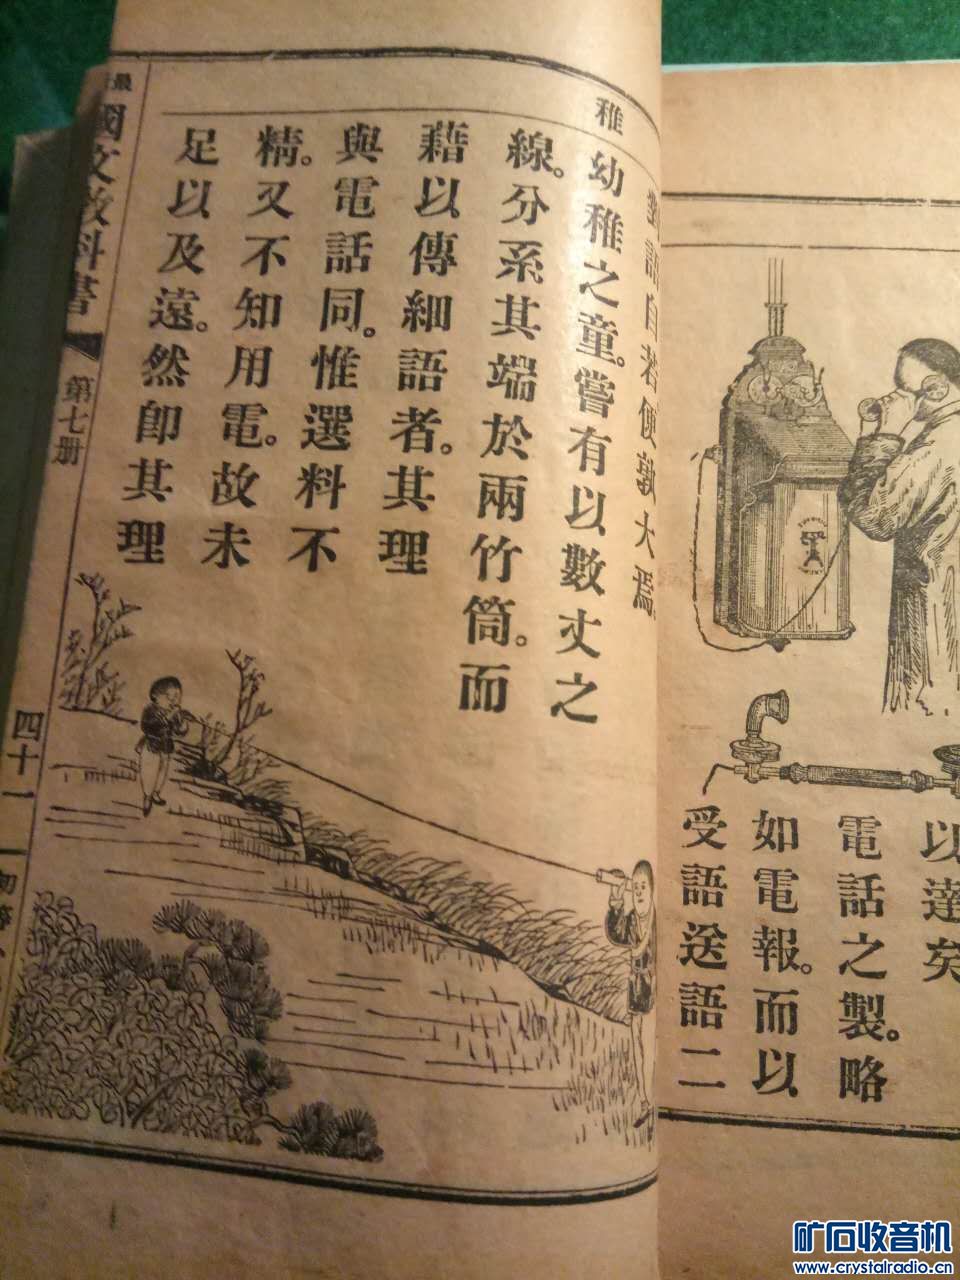 以達矣
電話之製。略
如電報。而以
受語送語二
稚
對語自若便孰大焉。
幼稚之童。嘗有以數丈之
線。分系其端於兩竹筒。而
藉以傳細語者。其理
與電話同。惟選料不
精。又不知用電。故未
足以及遠。然卽其理
最
國文教科書
第七册
四十一
初等
矿石收音机
www.crystalradio.cn